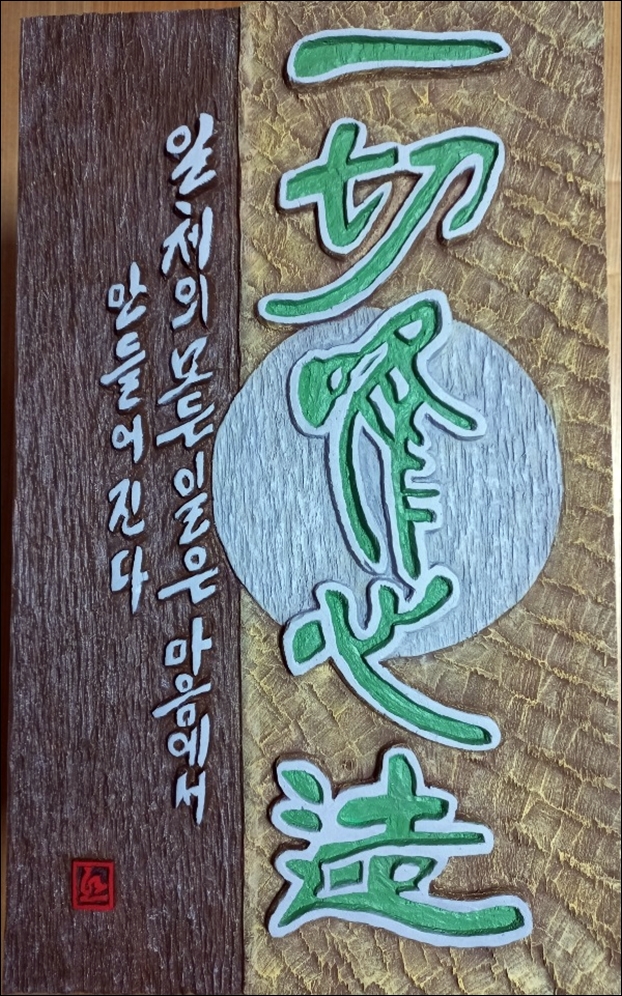 一切唯心造
일체의 모든 일은 마음에서
만들어진다